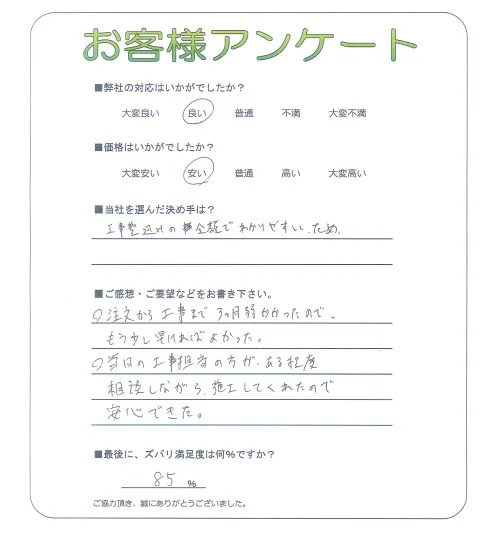 お客様アンケート
■弊社の対応はいかがでしたか？
大変良い 良い 普通 不満 大変不満
■価格はいかがでしたか？
大変安い 安い 普通 高い 大変高い
■当社を選んだ決め手は？
工事費込みの金額でわかりやすい、ため、
■ご感想・ご要望などをお書き下さい。
○注文から工事まで3ヶ月弱かかったので、
もう少し早ければよかった。
○当日の工事担当の方が、ある程度
相談しながら、施工してくれたので
安心できた。
■最後に、ズバリ満足度は何％ですか？
85 %
ご協力頂き、誠にありがとうございました。